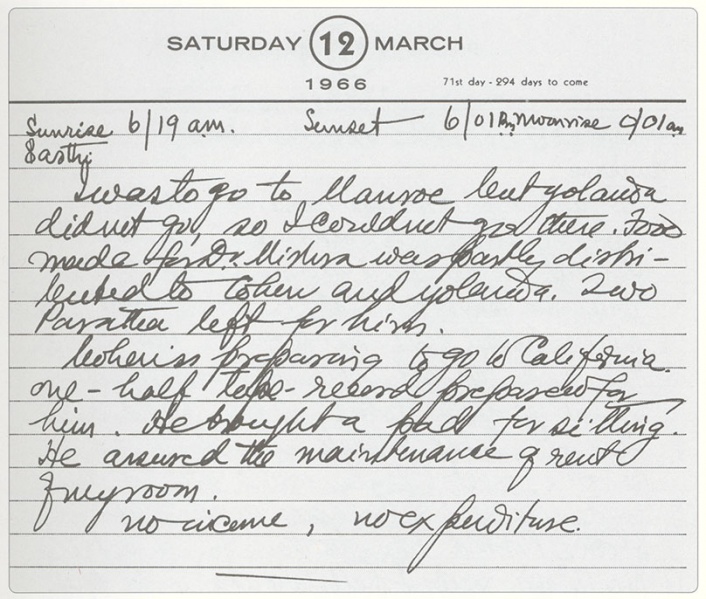 SATURDAY 12 MARCH
1966 71st day - 294 days to come
Sunrise 6/19 am. Sunset 6/01 Pm, moonrise 0/01 am
Sasthi
I was to go to Monroe but yolanda
did not go, so I could not go there. Food
made for Dr Mishra was partly distri-
buted to Cohen and yolanda. Two
Paratha left for him.
Cohen is preparing to go to California.
one-half tape-record prepared for
him. He brought a pad for sitting.
He assured the maintenance of rent
of my room.
no income, no expenditure.